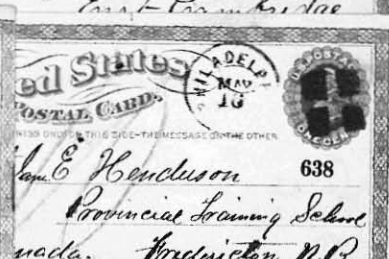 East Cambridge
ed States
POSTAL CARD.
NING ONLY ON THIS SIDE-THE MESSAGE ON THE OTHER
PHILADELP
MAY
16
U.S. POSTAGE
ONE CENT
E Henderson
638
Provincial Training School
nada. Fredericton N.B